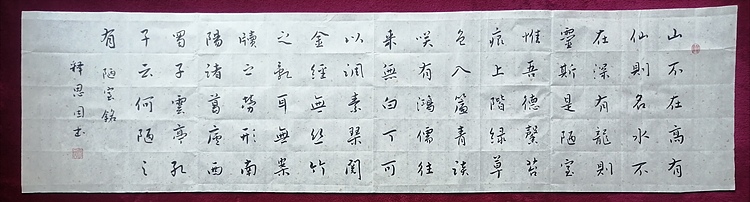 山不在高有
仙則名水不
在深有龍則
靈斯是陋室
惟吾德馨苔
痕上階緑草
色入簾青談
咲有鴻儒往
來無白丁可
以調素琴閱
金經無丝竹
之亂耳無案
牘之勞形南
陽諸葛廬西
蜀子雲亭孔
子云何陋之
有 陋室銘
釋思